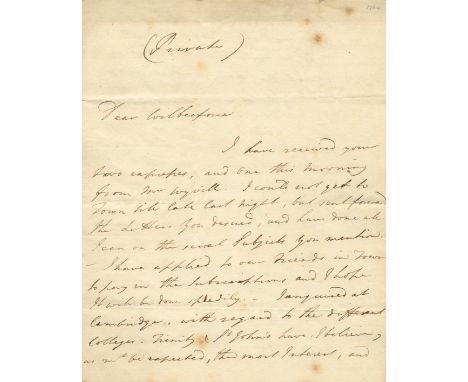 (Private)
Dear Wilberforce
I have received your
two expresses, and one this Morning
from Mr Wyvill. I could not get to
Town till late last night, but sent forward
the Letters you desired, and have done all
I can on the several Subjects you mention.
— I have applied to our Friends in Town
to pay in the Subscriptions and I hope
It will be done speedily — I enquired at
Cambridge, with regard to the different
Colleges. Trinity & St John's have, I believe,
as mt be expected, the most Interest, and